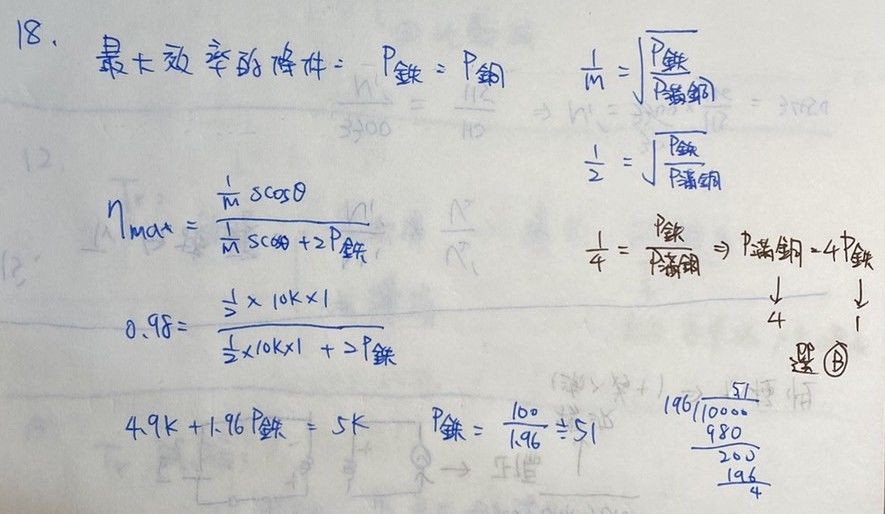 18.
最大效率的條件= P鉄 = P銅
1/m = √(P鉄/P滿銅)
1/2 = √(P鉄/P滿銅)
ηmax = (1/m scosθ)/(1/m scosθ + 2P鉄)
1/4 = P鉄/P滿銅 ⇒ P滿銅 = 4P鉄
↓ ↓
4 1
選 Ⓑ
0.98 = (1/2 × 10K × 1)/(1/2 × 10K × 1 + 2P鉄)
4.9K + 1.96P鉄 = 5K P鉄 = 100/1.96 ≒ 51
51
196 10000
980
200
196
4